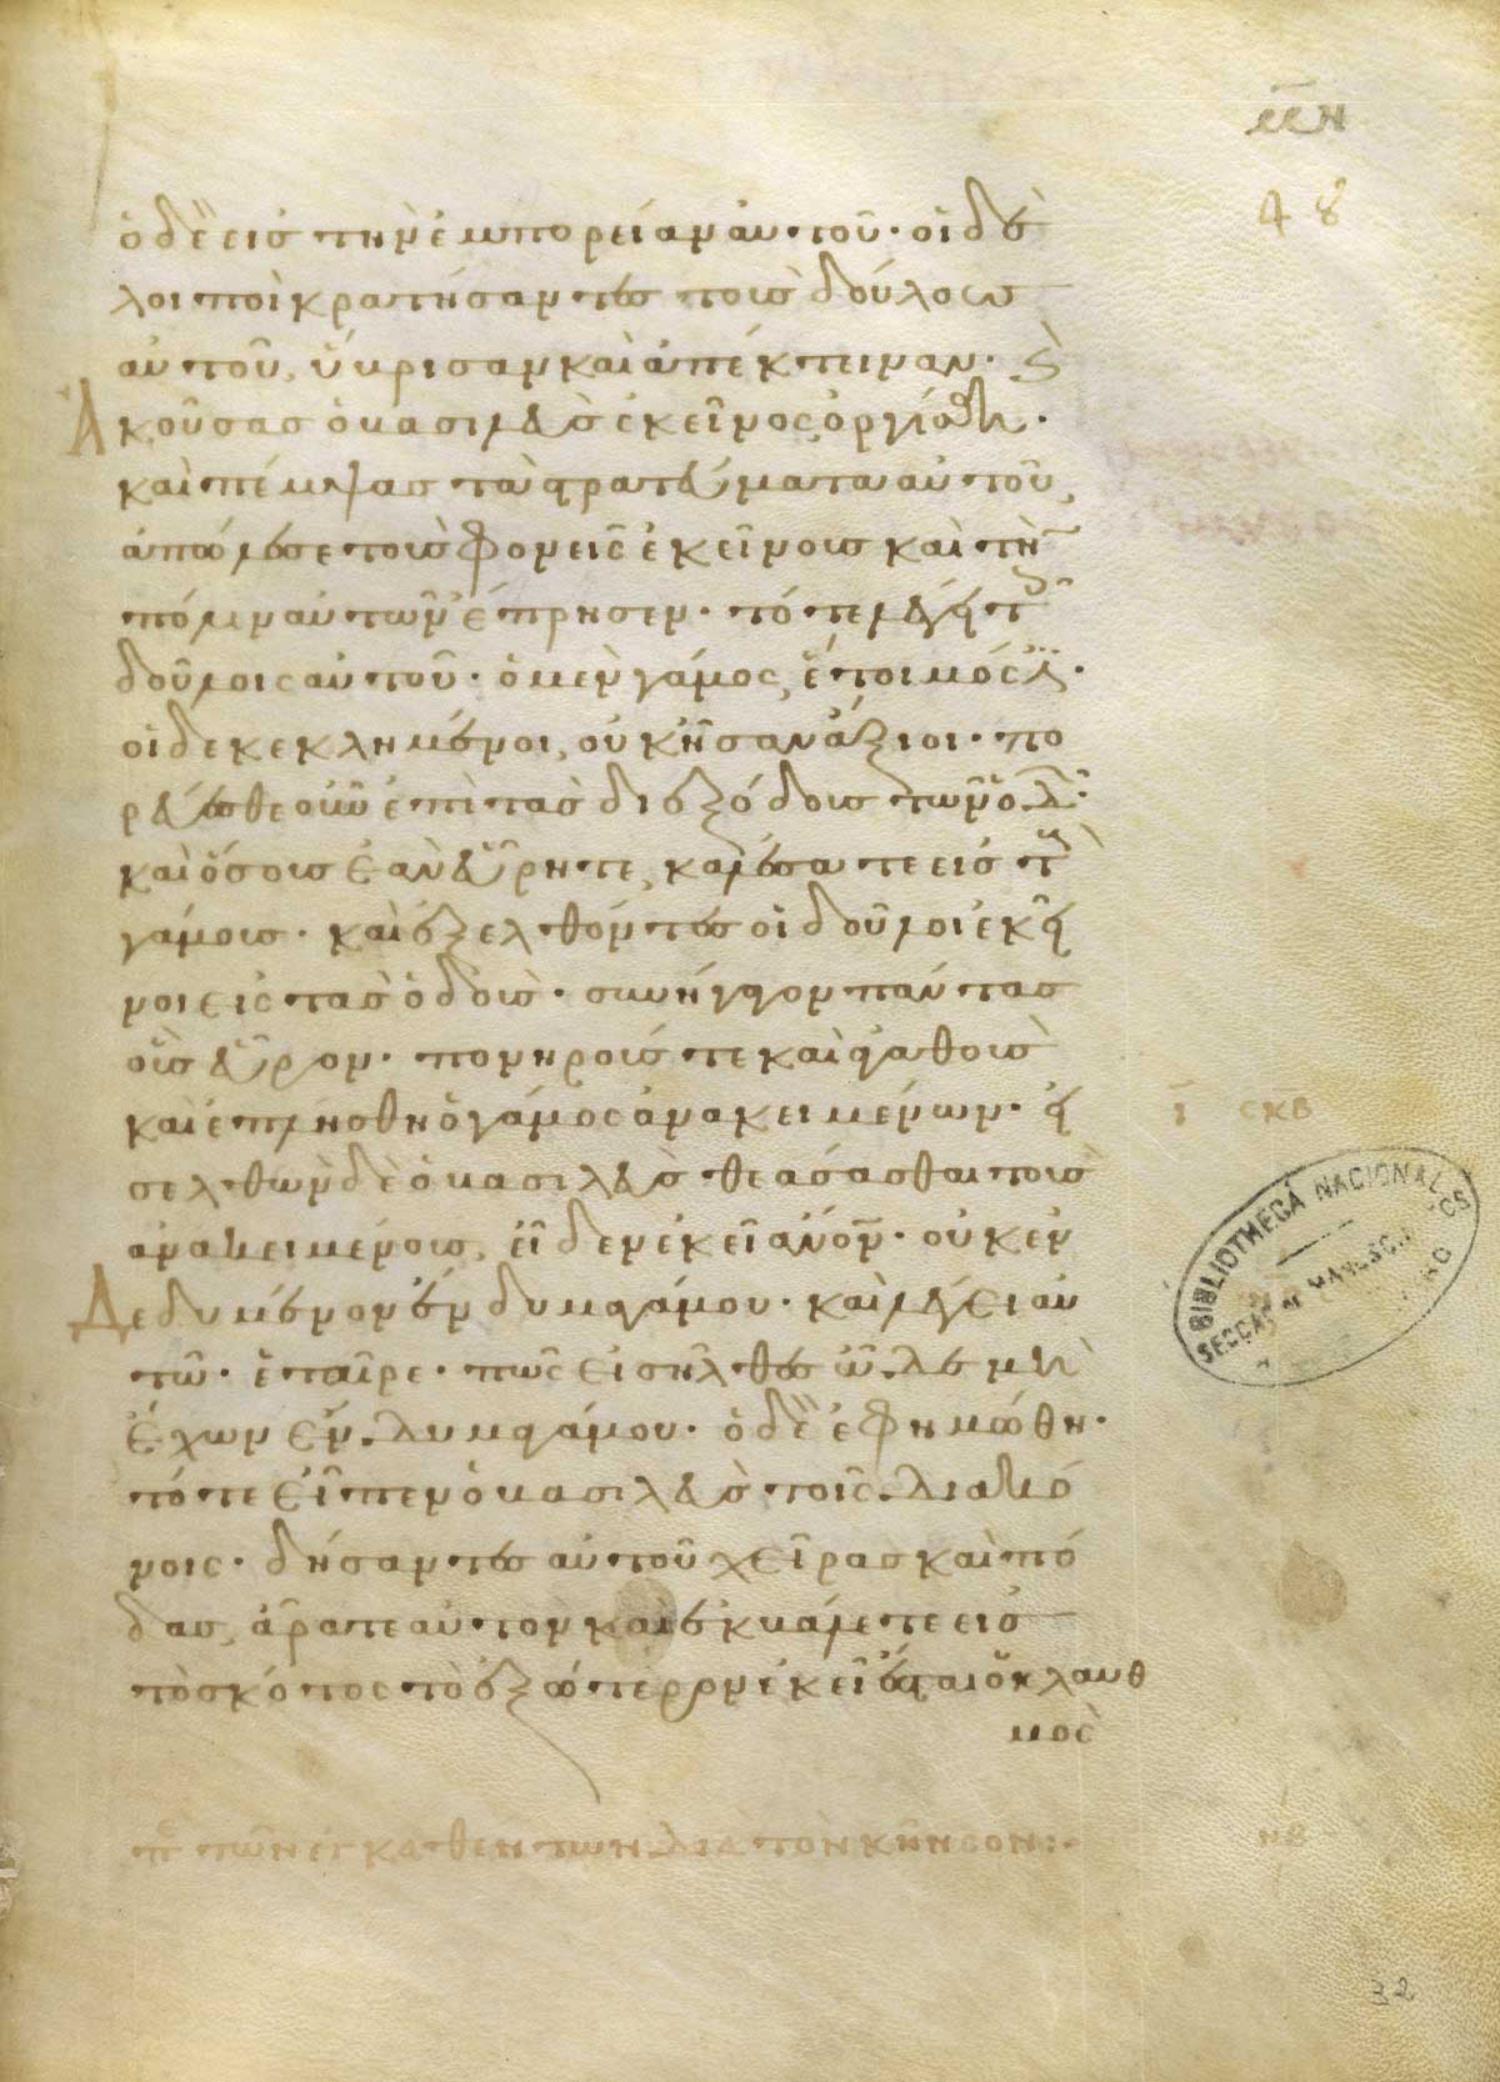 μη
48
ὁ δὲ εἰς τὴν ἐμπορείαν αὐτοῦ· οἱ δὲ
λοιποὶ κρατήσαντες τοὺς δούλους
αὐτοῦ, ὕβρισαν καὶ ἀπέκτειναν· ϗ
ἀκούσας ὁ βασιλεὺς ἐκεῖνος ὀργίσθη·
καὶ πέμψας τὰ στρατεύματα αὐτοῦ,
ἀπώλεσε τοὺς φονεῖς ἐκείνους καὶ τὴν
πόλιν αὐτῶν ἐπρησεν· τότε λέγει τοῖς
δούλοις αὐτοῦ· ὁ μὲν γάμος, ἕτοιμός ἐστι·
οἱ δὲ κεκλημένοι, οὐκ ἦσαν ἄξιοι· πο
ρεύεσθε οὖν ἐπὶ τὰς διεξόδους τῶν ὁδῶν·
καὶ ὅσους ἐὰν εὕρητε, καλέσατε εἰς τοὺς
γάμους· καὶ ἐξελθόντες οἱ δοῦλοι ἐκεῖ
νοι εἰς τὰς ὁδοὺς· συνήγαγον πάντας
οὓς εὗρον· πονηρούς τε καὶ ἀγαθοὺς
καὶ ἐπλήσθη ὁ γάμος ἀνακειμένων· εἰ
σελθὼν δὲ ὁ βασιλεὺς θεάσασθαι τοὺς
ἀνακειμένους, εἶδεν ἐκεῖ ἄνον· οὐκ ἐν
δεδυμένον ἔνδυμα γάμου· καὶ λέγει αὐ
τῷ· ἑταῖρε· πῶς εἰσῆλθες ὧδε μὴ
ἔχων ἔνδυμα γάμου· ὁ δὲ ἐφημώθη·
τότε εἶπεν ὁ βασιλεὺς τοῖς διακό
νοις· δήσαντες αὐτοῦ χεῖρας καὶ πό
δας, ἄρατε αὐτὸν καὶ ἐκβάλετε εἰς
τὸ σκότος τὸ ἐξώτερον ἐκεῖ ἔσται ὁ κλαυθ
μὸς
ι σκβ
BIBLIOTHECA NACIONAL
πε τῶν ἐγκαθετων δια τὸν κῆνσον:·
νβ
32